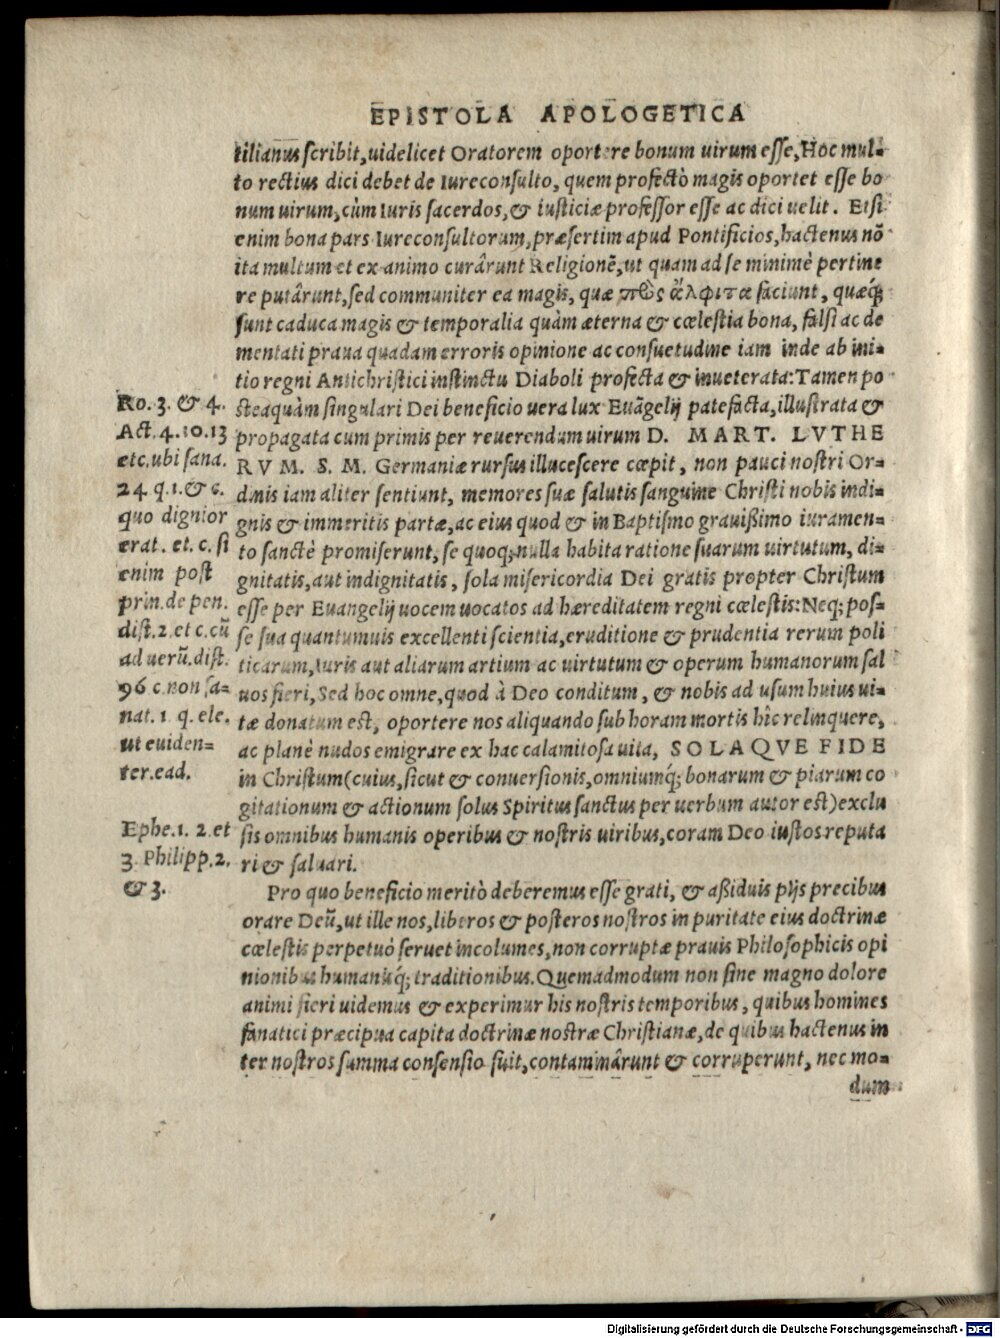 EPISTOLA APOLOGETICA
tilianus scribit, uidelicet Oratorem oportere bonum uirum esse, Hoc mul=
to rectius dici debet de Iureconsulto, quem profectò magis oportet esse bo
num uirum, cùm Iuris sacerdos, & iusticiæ professor esse ac dici uelit. Etsi
enim bona pars Iureconsultorum, præsertim apud Pontificios, hactenus nō
ita multum et ex animo curârunt Religionē, ut quam ad se minimè pertine
re putârunt, sed communiter ea magis, quæ πρὸς ἄλφιτα faciunt, quæq́;
sunt caduca magis & temporalia quàm æterna & cœlestia bona, falsi ac de
mentati praua quadam erroris opinione ac consuetudine iam inde ab ini=
tio regni Antichristici instinctu Diaboli profecta & inueterata: Tamen po
steaquàm singulari Dei beneficio uera lux Euāgelij patefacta, illustrata &
propagata cum primis per reuerendum uirum D. MART. LVTHE
RVM. S. M. Germaniæ rursus illucescere cœpit, non pauci nostri Or=
dinis iam aliter sentiunt, memores suæ salutis sanguine Christi nobis indi=
gnis & immeritis partæ, ac eius quod & in Baptismo grauißimo iuramen=
to sanctè promiserunt, se quoq; nulla habita ratione suarum uirtutum, di=
gnitatis, aut indignitatis, sola misericordia Dei gratis propter Christum
esse per Euangelij uocem uocatos ad hæreditatem regni cœlestis: Neq; pos=
se sua quantumuis excellenti scientia, eruditione & prudentia rerum poli
ticarum, Iuris aut aliarum artium ac uirtutum & operum humanorum sal
uos fieri, Sed hoc omne, quod à Deo conditum, & nobis ad usum huius ui=
tæ donatum est, oportere nos aliquando sub horam mortis hîc relinquere,
ac planè nudos emigrare ex hac calamitosa uita, SOLAQVE FIDE
in Christum (cuius, sicut & conuersionis, omniumq́; bonarum & piarum co
gitationum & actionum solus Spiritus sanctus per uerbum autor est) exclu
sis omnibus humanis operibus & nostris uiribus, coram Deo iustos reputa
ri & saluari.
Pro quo beneficio meritò deberemus esse grati, & aßiduis pijs precibus
orare Deū, ut ille nos, liberos & posteros nostros in puritate eius doctrinæ
cœlestis perpetuò seruet incolumes, non corruptæ prauis Philosophicis opi
nionibus humanisq́; traditionibus. Quemadmodum non sine magno dolore
animi fieri uidemus & experimur his nostris temporibus, quibus homines
fanatici præcipua capita doctrinæ nostræ Christianæ, de quibus hactenus in
ter nostros summa consensio fuit, contaminârunt & corruperunt, nec mo=
dum
Ro. 3. & 4.
Act. 4. 10. 13
etc. ubi sana.
24 q. 1. & c.
quo dignior
erat. et. c. si
enim post
prin. de pen.
dist. 2. et c. cū
ad uerū. dist.
96 c. non sa=
nat. 1 q. ele.
ut euiden=
ter. ead.
Ephe. 1. 2. et
3 Philipp. 2.
& 3.
Digitalisierung gefördert durch die Deutsche Forschungsgemeinschaft - DFG